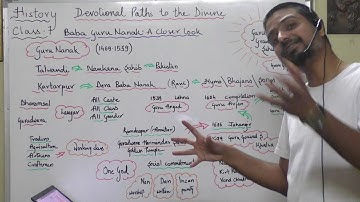 History Devotional Paths to the Divine
Class 7 Baba Guru Nanak: A Closer Look
Guru Nanak (1469-1539)
Talwandi → Nankana Sahib → Pakistan
Kartarpur → Dera Baba Nanak (Ravi) → Hymns/Bhajans
Dharamsal
Gurdwara
Langar
All Caste
All Class
All Gender
1539 Lehna
Guru Angad
1604 compilation
Guru Arjan
Traders
Agriculture
Artisans
Craftsmen
Working class
Ramdaspur (Amritsar)
Gurdwara Harmandar
Golden Temple
1606 Jahangir
Guru Gobind S
Khalsa
One God
Social commitment
Nam
worship
Dan
welfare
Isnan
purity
Kirt K
Vand Chhak